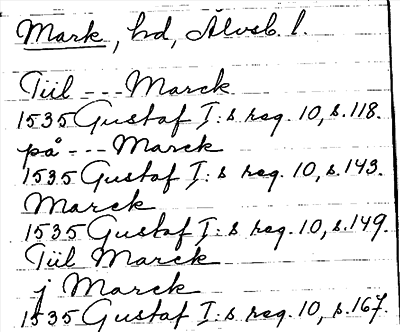 Mark, hd, Älvsb. l.
Tiil --- Marck
1535 Gustaf I:s reg. 10, s.118.
på --- Marck
1535 Gustaf I:s reg. 10, s.143.
Marck
1535 Gustaf I:s reg. 10, s.149.
Tiil Marck
j Marck
1535 Gustaf I:s reg. 10, s.167.